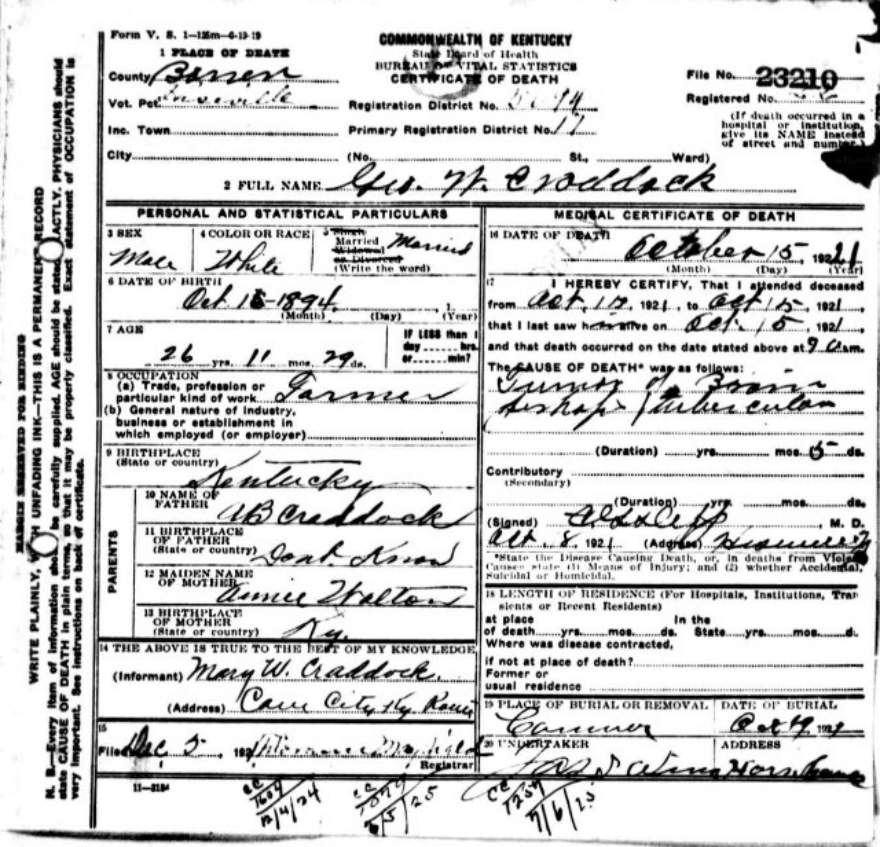 Form V. S. 1—125m—6-13-19
COMMONWEALTH OF KENTUCKY
State Board of Health
BUREAU OF VITAL STATISTICS
CERTIFICATE OF DEATH
1 PLACE OF DEATH
County Barren
Vot. Pct
Inc. Town
City
Registration District No.
Primary Registration District No. 17
(No. St., Ward)
File No. 23210
Registered No.
(If death occurred in a hospital or institution, give its NAME instead of street and number.)
2 FULL NAME Geo. W. Craddock
PERSONAL AND STATISTICAL PARTICULARS
3 SEX
Male
4 COLOR OR RACE
White
5 Single
Married
Widowed
or Divorced
(Write the word)
Married
6 DATE OF BIRTH
Oct 15-1894
(Month) (Day) (Year)
7 AGE
26 yrs. 11 mos. 29 ds.
IF LESS than 1
day hrs.
or min?
8 OCCUPATION
(a) Trade, profession or
particular kind of work Farmer
(b) General nature of industry,
business or establishment in
which employed (or employer)
9 BIRTHPLACE
(State or country)
Kentucky
PARENTS
10 NAME OF
FATHER
AB Craddock
11 BIRTHPLACE
OF FATHER
(State or country) Dont Know
12 MAIDEN NAME
OF MOTHER
Annie Walton
13 BIRTHPLACE
OF MOTHER
(State or country) Ky.
14 THE ABOVE IS TRUE TO THE BEST OF MY KNOWLEDGE
(Informant) Mary W. Craddock.
(Address) Cave City Ky. Route
15
Filed Dec 5 192
Registrar
11—3184
MEDICAL CERTIFICATE OF DEATH
16 DATE OF DEATH
October 15, 1921
(Month) (Day) (Year)
17 I HEREBY CERTIFY, That I attended deceased
from Oct. 1921, to Oct 15, 1921
that I last saw him alive on Oct. 15, 1921
and that death occurred on the date stated above at 9 a.m.
The CAUSE OF DEATH* was as follows:
Tumor of Brain
Perhaps tubercular
(Duration) yrs. mos. 5 ds.
Contributory
(Secondary)
(Duration) yrs. mos. ds.
(Signed) , M. D.
Oct. 8, 1921 (Address)
*State the Disease Causing Death, or, in deaths from Violent
Causes state (1) Means of Injury; and (2) whether Accidental,
Suicidal or Homicidal.
18 LENGTH OF RESIDENCE (For Hospitals, Institutions, Tran
sients or Recent Residents)
at place In the
of death yrs. mos. ds. State yrs. mos. d.
Where was disease contracted,
if not at place of death?
Former or
usual residence
19 PLACE OF BURIAL OR REMOVAL
DATE OF BURIAL
20 UNDERTAKER
ADDRESS
CC
1604
12/4/24
CC
6/5/25
CC
1257
7/6/25
MARGIN RESERVED FOR BINDING
WRITE PLAINLY, WITH UNFADING INK—THIS IS A PERMANENT RECORD
N. B.—Every item of information should be carefully supplied. AGE should be stated EXACTLY. PHYSICIANS should
state CAUSE OF DEATH in plain terms, so that it may be properly classified. Exact statement of OCCUPATION is
very important. See instructions on back of certificate.